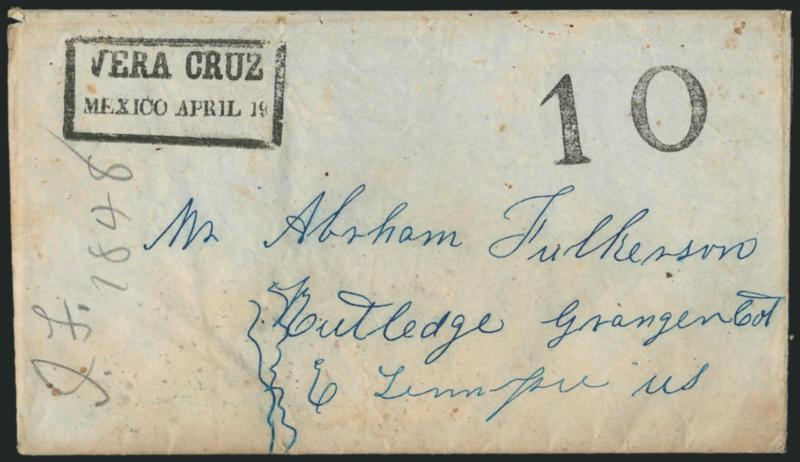 VERA CRUZ
MEXICO APRIL 19
10
Mr Abrham Fulkerson
Rutledge Granger Cot
E Tennessee US
1848